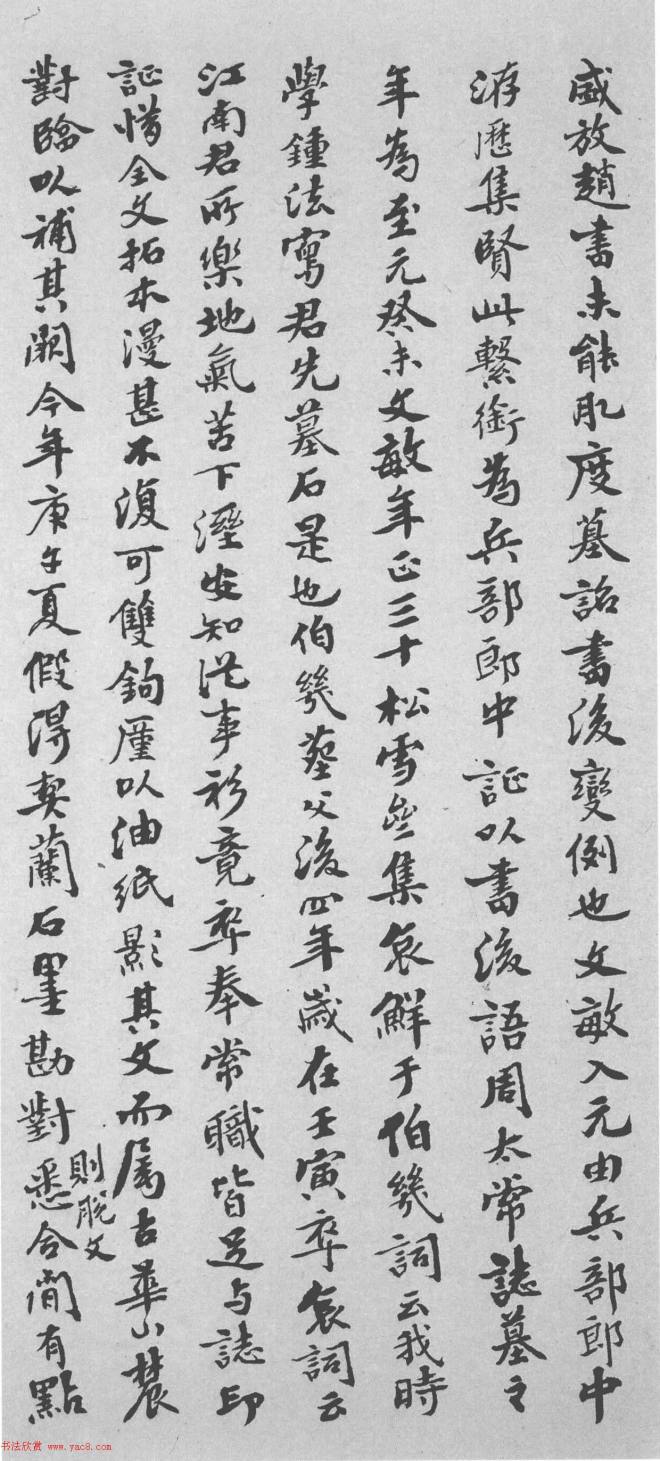 盛放趙書未能肌度墓誌書後變例也文敏入元由兵部郎中
洊歷集賢此繫銜為兵部郎中証以書後語周太常誌墓之
年為至元癸未文敏年正三十松雪齋集哀鮮于伯幾詞云我時
學鍾法寫君先墓石是也伯幾葬父後四年歲在壬寅卒哀詞云
江南君所樂地氣苦下溼安知從事衫竟卒奉常職皆足与誌印
証惜全文拓本漫甚不復可雙鉤廑以油紙影其文而屬古華山農
對臨以補其闕今年庚午夏假得契蘭石墨勘對悉合閒有點
則脫文
书法欣赏 www.yac8.com